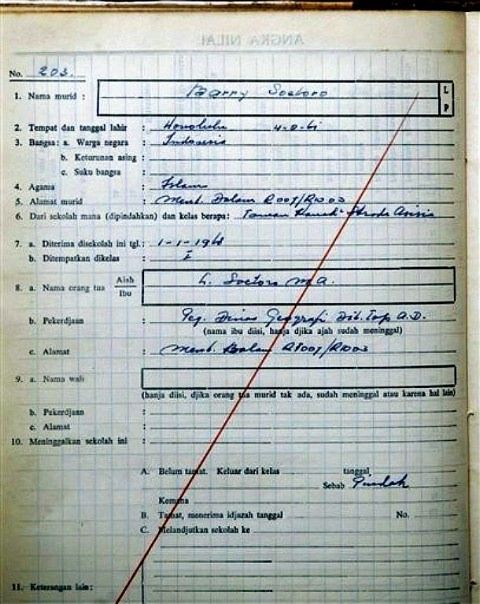 ANGKA NILAI
No. 203.
1. Nama murid : Barry Soetoro L P
2. Tempat dan tanggal lahir : Honolulu 4-8-61
3. Bangsa: a. Warga negara : Indonesia
b. Keturunan asing :
c. Suku bangsa :
4. Agama : Islam
5. Alamat murid : Ment. Dalam R 007/RW 003
6. Dari sekolah mana (dipindahkan) dan kelas berapa: Taman Strada Asisi
7. a. Diterima disekolah ini tgl.: 1-1-1968
b. Ditempatkan dikelas : I
8. a. Nama orang tua Ajah/Ibu : L. Soetoro M.A.
b. Pekerdjaan : Peg. Dinas Geografi Dit. Top. A.D.
(nama ibu diisi, hanja djika ajah sudah meninggal)
c. Alamat : Ment. Dalam R 007/RW 003
9. a. Nama wali
(hanja diisi, djika orang tua murid tak ada, sudah meninggal atau karena hal lain)
b. Pekerdjaan :
c. Alamat :
10. Meninggalkan sekolah ini :
A. Belum tamat. Keluar dari kelas tanggal
Sebab Pindah
Kemana
B. Tamat, menerima idjazah tanggal No.
C. Melandjutkan sekolah ke
11. Keterangan lain :